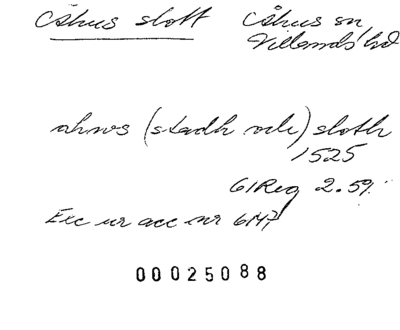 Åhus slott Åhus sn
Villands hd
ahws (stadh och) sloth
1525
G I Reg 2.59.
Exc ur acc nr 6147
00025088